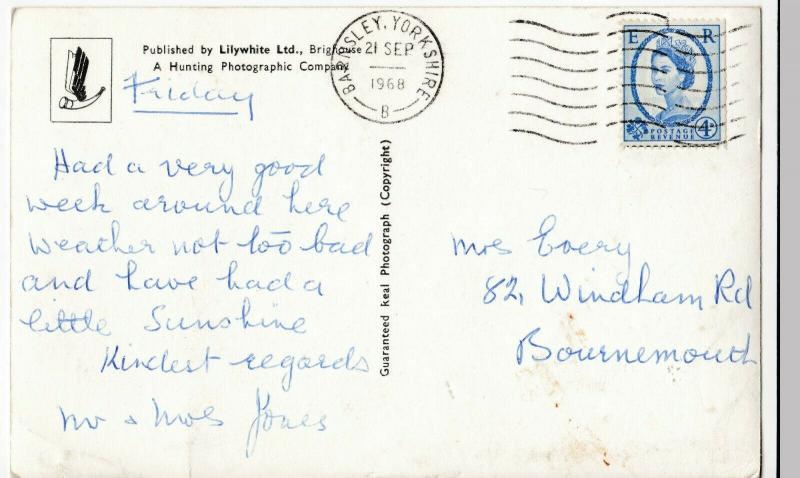 Published by Lilywhite Ltd., Brighouse
A Hunting Photographic Company
BARNSLEY, YORKSHIRE
21 SEP
1968
B
E R
POSTAGE
REVENUE
4D
Friday
Had a very good
week around here
Weather not too bad
and have had a
little Sunshine
Kindest regards
Mr & Mrs Jones
Guaranteed Real Photograph (Copyright)
Mrs Every
82, Windham Rd
Bournemouth